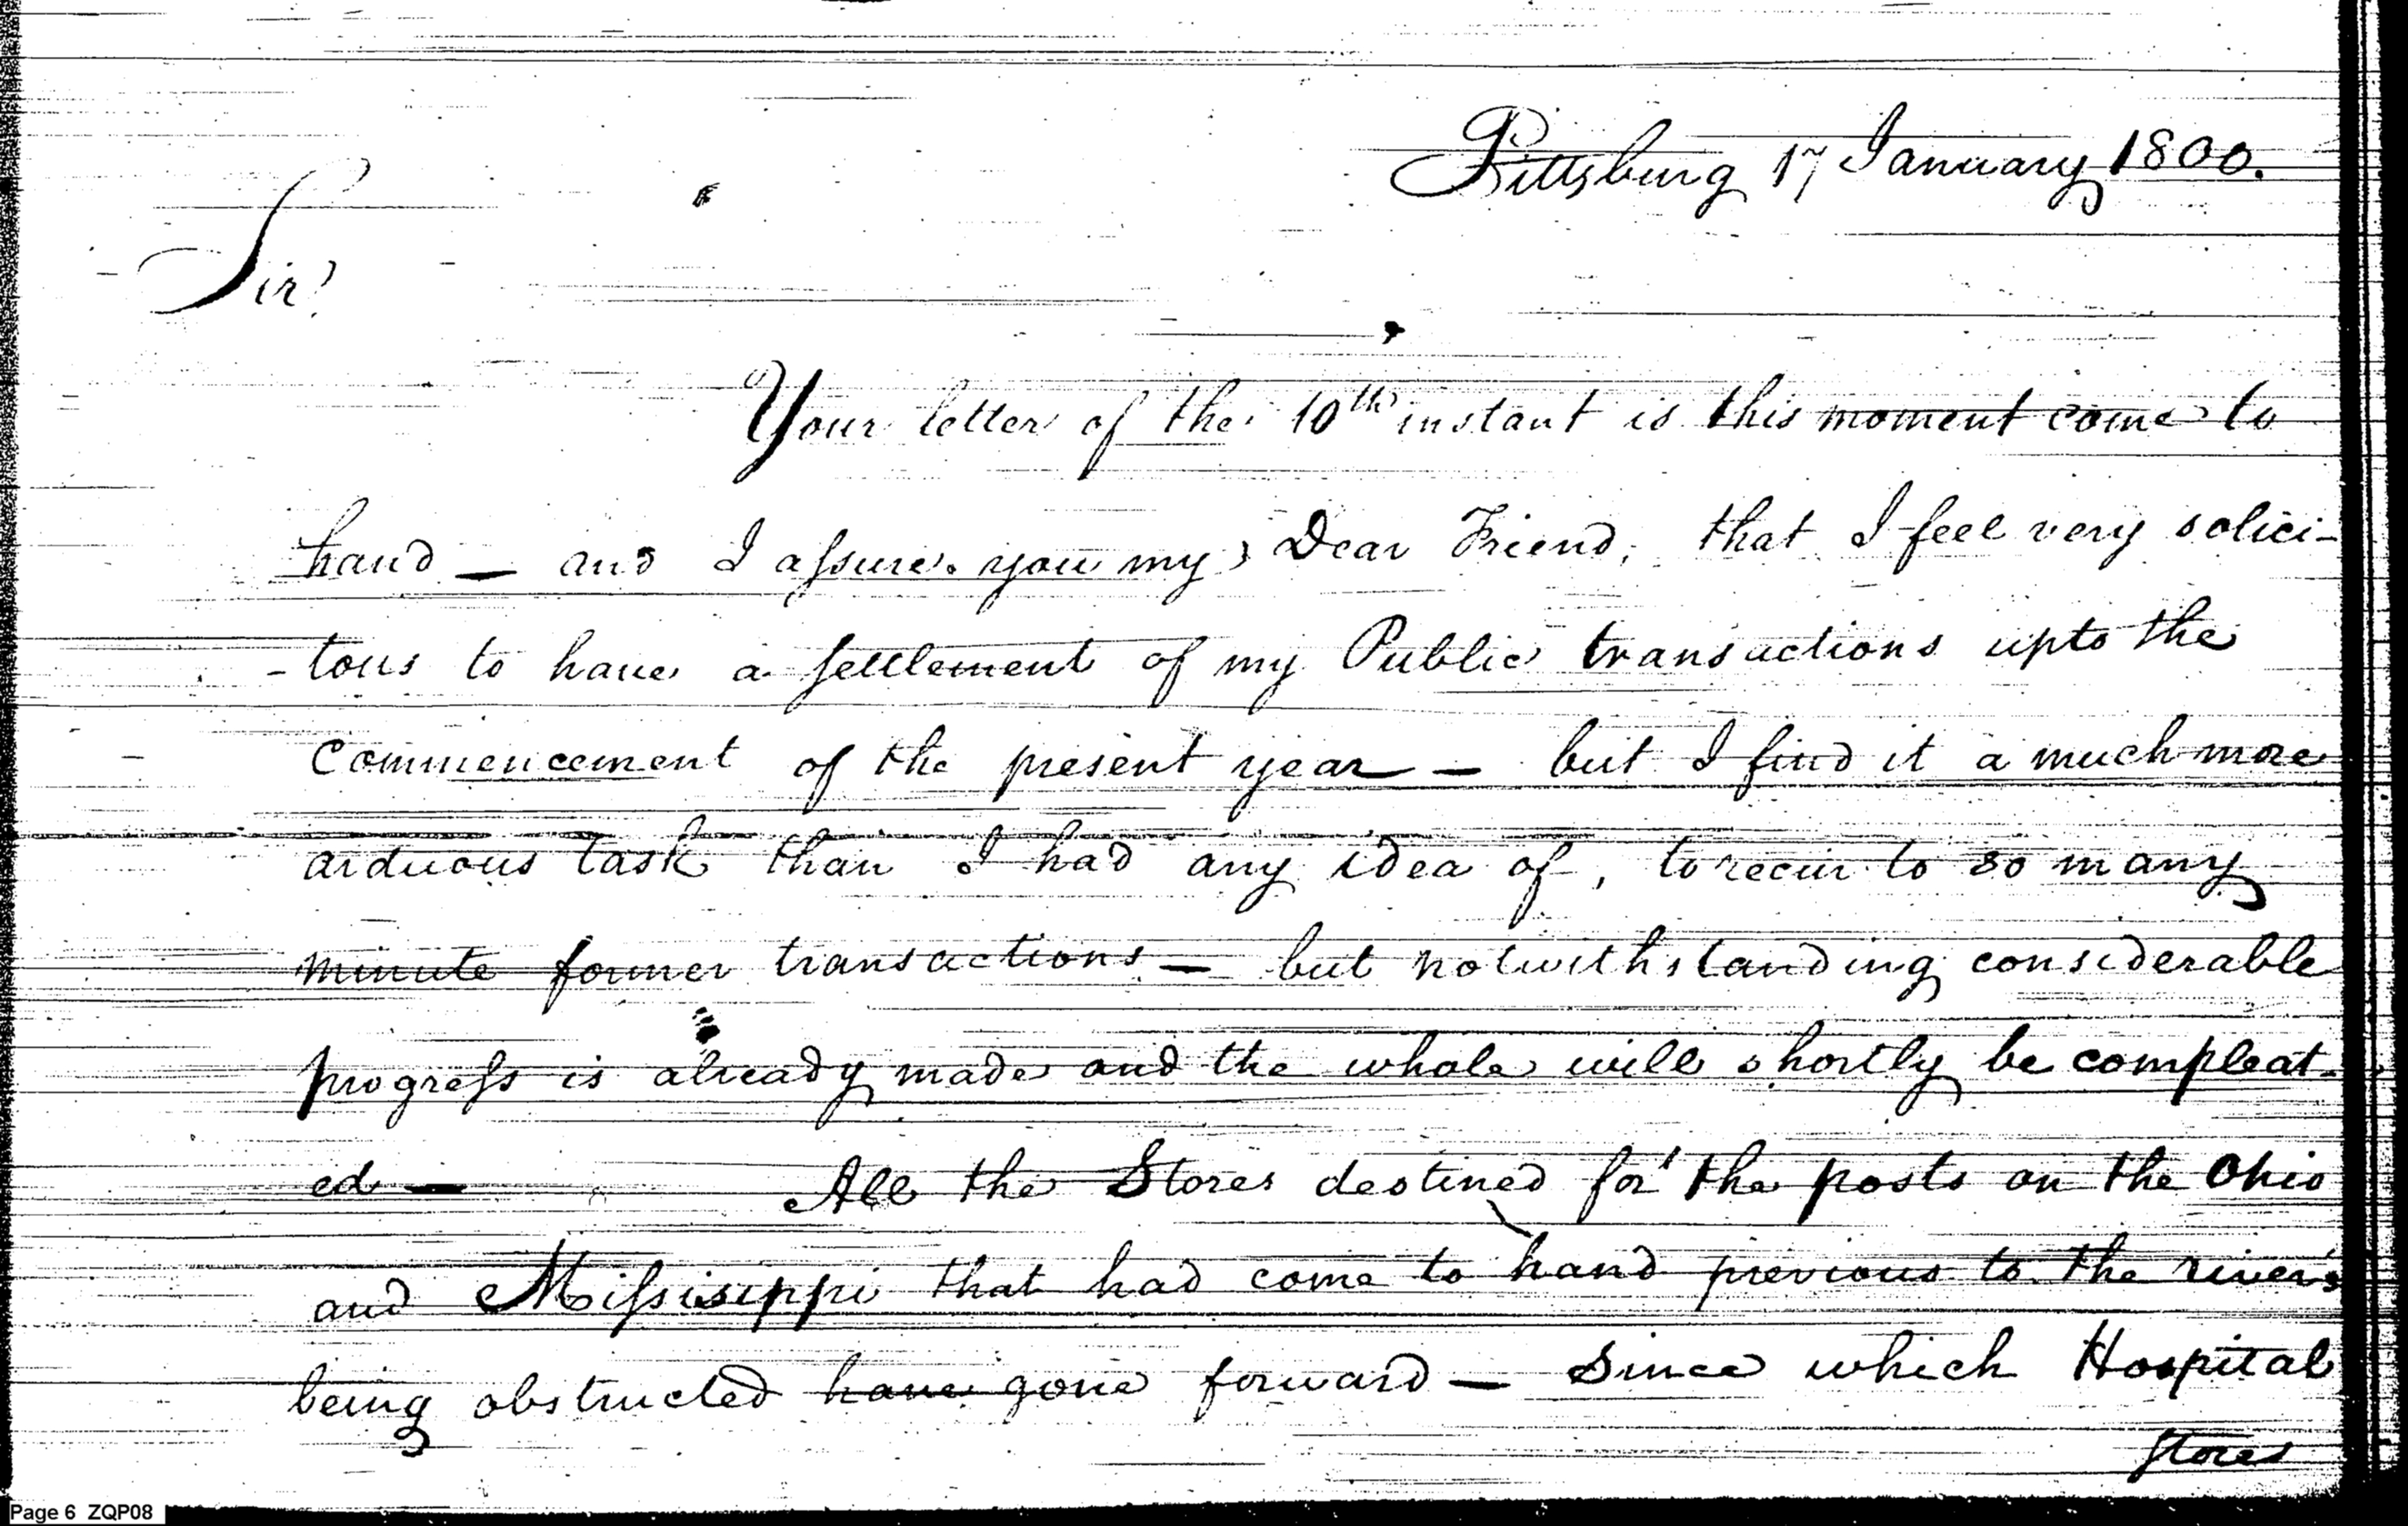 Pittsburg 17 January 1800.
Sir!
Your letter of the 10th instant is this moment come to
hand — and I assure you my Dear Friend, that I feel very solici-
-tous to have a settlement of my Public transactions upto the
Commencement of the present year — but I find it a much more
arduous task than I had any idea of, to recur to so many
minute former transactions — but notwithstanding considerable
progress is already made and the whole will shortly be compleat-
ed — All the Stores destined for the posts on the Ohio
and Missisippi that had come to hand previous to the rivers
being obstructed have gone forward — Since which Hospital
Stores
Page 6 ZQP08